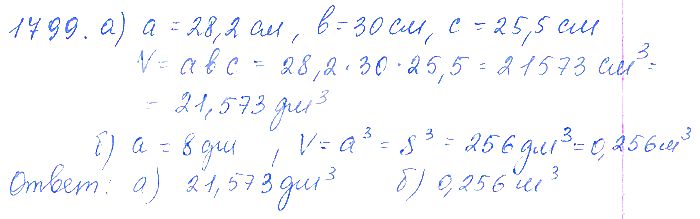 1799. а) a = 28,2 см, в = 30 см, с = 25,5 см
V = aвc = 28,2 · 30 · 25,5 = 21573 см³ =
= 21,573 дм³
б) a = 8 дм, V = a³ = 8³ = 256 дм³ = 0,256 м³
Ответ: а) 21,573 дм³ б) 0,256 м³